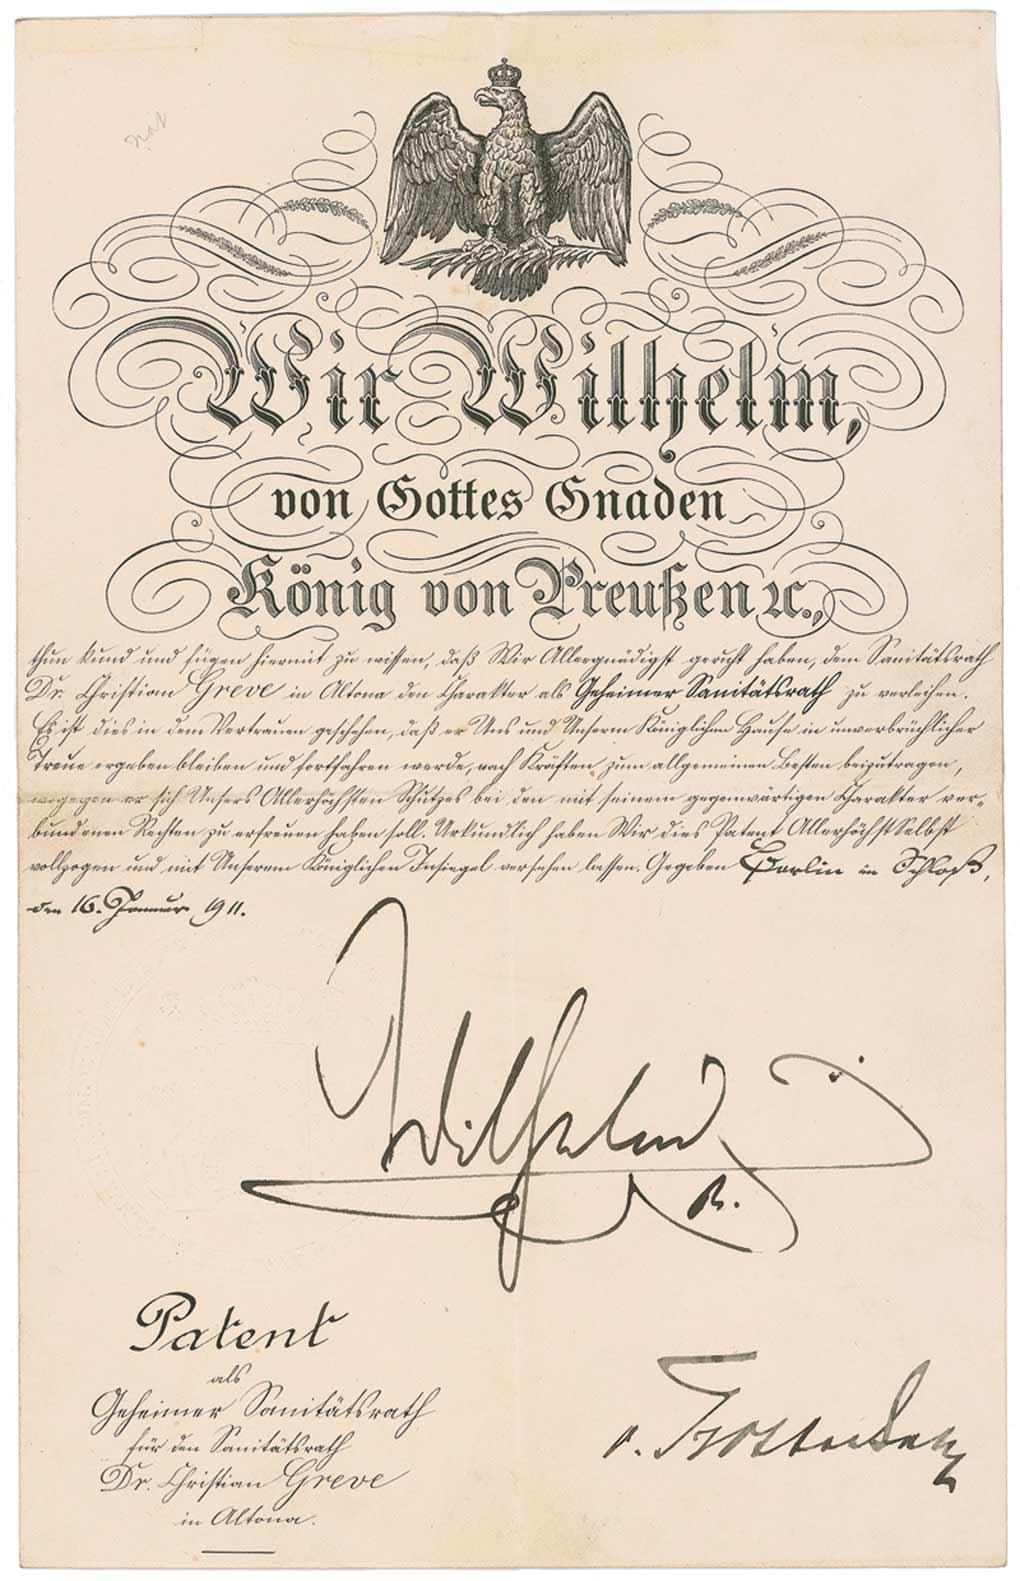 Wir Wilhelm,
von Gottes Gnaden
König von Preußen ꝛc.,
thun kund und fügen hiermit zu wissen, daß Wir Allergnädigst geruht haben, dem Sanitätsrath
Dr. Christian Greve in Altona den Charakter als Geheimer Sanitätsrath zu verleihen.
Es ist dies in dem Vertrauen geschehen, daß er Uns und Unserm Königlichen Hause in unverbrüchlicher
Treue ergeben bleiben und fortfahren werde, nach Kräften zum allgemeinen Besten beizutragen,
wogegen er sich Unsers Allerhöchsten Schutzes bei den mit seinem gegenwärtigen Charakter ver-
bundenen Rechten zu erfreuen haben soll. Urkundlich haben Wir dies Patent Allerhöchst Selbst
vollzogen und mit Unserem Königlichen Insiegel versehen lassen. Gegeben Berlin im Schloß,
den 16. Januar 1911.
Wilhelm
R.
Patent
als
Geheimer Sanitätsrath
für den Sanitätsrath
Dr. Christian Greve
in Altona.
v. Trott zu Solz